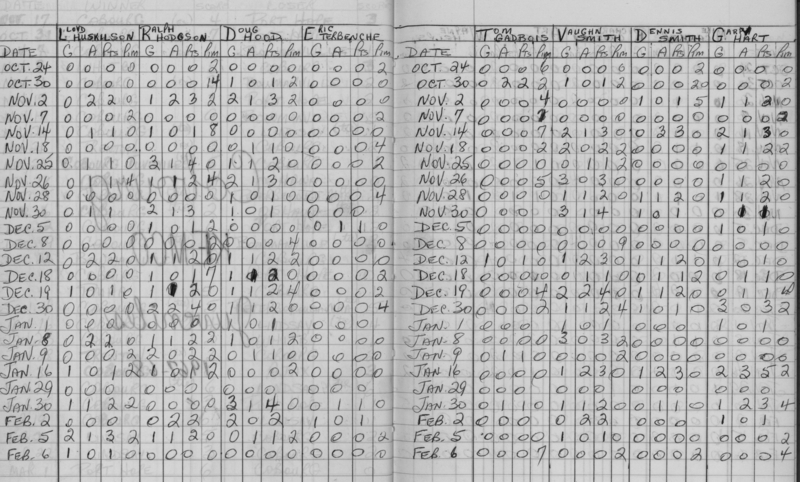 LLOYD HUSKILSON RALPH HODGSON DOUG HOOD ERIC TERBENCHE
DATE G A Pts Pim G A Pts Pim G A Pts Pim G A Pts Pim
OCT. 24 0 0 0 0 0 0 0 2 0 0 0 0 0 0 0 2
OCT 30 0 0 0 0 0 0 0 14 1 0 1 2 0 0 0 0
NOV. 2 0 2 2 0 1 2 3 2 2 1 3 2 0 0 0 0
NOV. 7 0 0 0 2 0 0 0 0 0 0 0 0 0 0 0 2
NOV. 14 0 1 1 0 1 0 1 8 0 0 0 0 0 0 0 0
NOV. 18 0 0 0 0 0 0 0 0 0 1 1 0 0 0 0 4
NOV. 25 0 1 1 0 4 0 1 2 0 0 0 2
NOV 26 0 1 1 4 1 1 2 4 2 3 0 0 0 0 0
NOV. 28 0 0 0 0 0 0 0 0 1 0 1 0 0 0 0 4
NOV. 30 0 1 1 2 1 3 1 0 1 0 0 0
DEC. 5 0 0 0 0 1 0 2 0 0 0 0 0 1 1 0
DEC. 8 0 0 0 0 0 0 0 0 4 0 0 0 0
DEC. 12 0 2 2 0 1 2 0 1 2 2 0 0 0 0
DEC. 18 0 0 0 0 1 0 1 7 1 2 0 0 0 0 2
DEC. 19 1 0 1 0 1 2 0 1 2 4 0 0 0 2
DEC. 30 0 0 0 0 2 2 4 0 1 2 0 0 0 0 4
JAN. 1 0 0 0 0 0 0 0 1
JAN. 8 0 2 2 0 1 1 2 2 1 0 1 2 0 0 0 0
JAN. 9 0 0 0 2 2 0 2 2 0 1 1 0 0 0 0 0
JAN. 16 1 0 1 2 1 0 2 0 0 0 2 0 0 0 0
JAN. 29 0 0 0 0 0 0 0 0 0 0 0 0
JAN. 30 1 1 2 2 0 0 0 0 3 1 4 0 0 1 1 0
FEB. 2 0 0 0 0 2 2 2 0 2 1 0 1
FEB. 5 2 1 3 2 1 1 2 0 0 1 1 2 0 0 0 2
FEB. 6 1 0 1 0 0 0 0 0 0 0 0 0 0 0 0 0
TOM GADBOIS VAUGHN SMITH DENNIS SMITH GARY HART
DATE G A Pts Pim G A Pts Pim G A Pts Pim G A Pts Pim
OCT. 24 0 0 0 6 0 0 0 0 0 0 0 2 0 0 0 0
OCT 30 0 2 2 2 1 0 1 2 0 0 0 20 0 0 0 2
NOV. 2 0 0 0 4 0 0 0 0 1 0 1 5 1 1 2 0
NOV. 7 0 0 0 0 0 0 0 0 0 0 0 0 0 0 2
NOV. 14 0 0 0 7 2 1 3 0 0 3 3 0 2 1 3 0
NOV. 18 0 0 0 2 2 0 2 2 0 1 1 0 1 1 2 2
NOV. 25 0 0 0 0 0 1 1 2 0 0 0 0 0 0 0 0
NOV. 26 0 0 0 5 3 0 3 0 0 0 0 0 1 1 2 0
NOV. 28 0 0 0 0 1 1 2 0 1 1 2 0 1 1 2 0
NOV. 30 0 0 0 3 1 4 1 0 1 0
DEC. 5 0 0 0 0 0 0 0 0 0 0 0 0 1 0 1 0
DEC. 8 0 0 0 0 0 0 0 9 0 0 0 0 0 0 0 0
DEC. 12 1 0 1 0 1 2 3 0 1 0 1 2 0 1 1 0
DEC. 18 0 0 0 10 0 1 1 0 1 1 2 0 1 1 0
DEC. 19 0 0 0 4 2 2 4 0 1 1 2 0 0 1 1
DEC. 30 0 0 0 2 1 1 2 4 1 0 1 0 3 0 3 2
JAN. 1 0 0 0 1 0 1 0 0 0 1 0 1
JAN. 8 0 0 0 0 3 0 3 2 0 0 0 0 0 0 0 0
JAN. 9 0 1 1 0 0 0 0 2 0 0 0 0 0 0 0 0
JAN. 16 0 0 0 0 1 2 3 0 1 2 3 0 2 3 5 2
JAN. 29 0 0 0 0 0 0 0 0 0 0 0 0
JAN. 30 0 1 1 0 1 1 2 0 0 1 1 0 1 2 3 4
FEB. 2 0 0 0 0 2 2 1 0 1
FEB. 5 0 0 0 0 1 0 1 0 0 0 0 0 0 0 0 2
FEB. 6 0 0 0 7 0 0 0 2 0 0 0 2 0 0 0 4